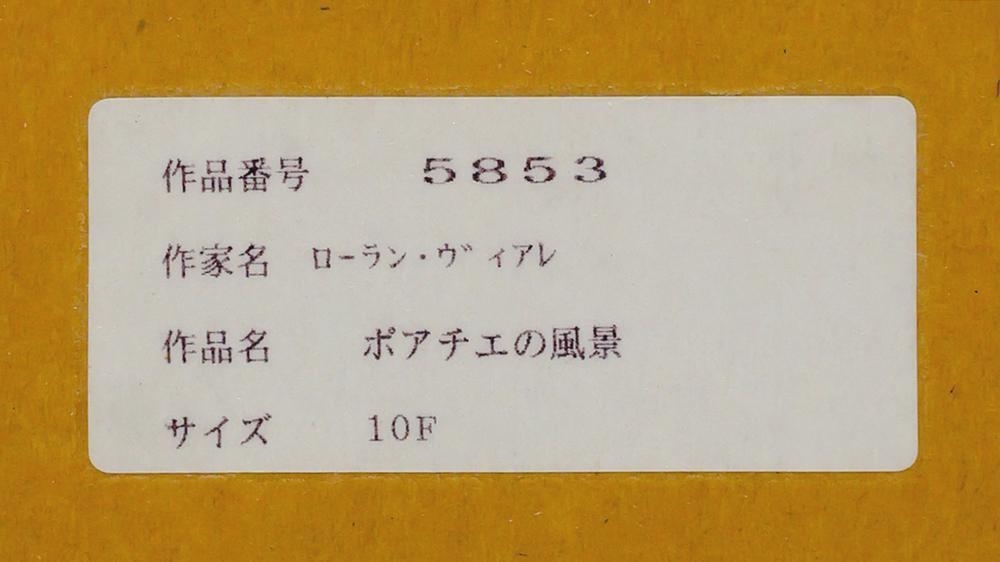 作品番号 5853
作家名 ローラン・ヴィアレ
作品名 ポアチエの風景
サイズ 10F